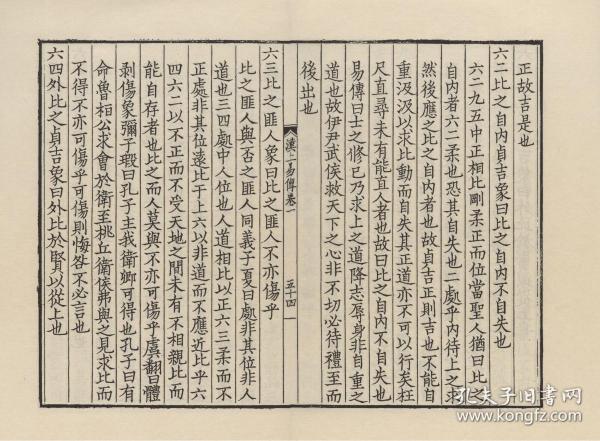 正故吉是也
六二比之自内貞吉象曰比之自内不自失也
六二九五中正相比剛柔正而位當聖人猶曰比之
自内者六二柔也恐其自失也二處乎内待上之求
然後應之比之自内者也故貞吉正則吉也不能自
重汲汲以求比動而自失其正道亦不可以行矣枉
尺直尋未有能直人者也故曰比之自内不自失也
易傳曰士之修己乃求上之道降志辱身非自重之
道也故伊尹武侯救天下之心非不切必待禮至而
後出也
漢上易傳卷一
五十四
六三比之匪人象曰比之匪人不亦傷乎
比之匪人與否之匪人同義子夏曰處非其位非人
道也三四處中人位也人道相比以正六三柔而不
正處非其位遠比于上六以非道而不應近比乎六
四六二以不正而不受天地之間未有不相親比而
能自存者也比之而人莫與不亦可傷乎虞翻曰體
剥傷象彌子瑕曰孔子主我衛卿可得也孔子曰有
命魯桓公求會於衛至桃丘衛侯弗與之見求比而
不得不亦可傷乎可傷則悔咎不必言也
六四外比之貞吉象曰外比於賢以從上也
孔夫子旧书网
www.kongfz.com